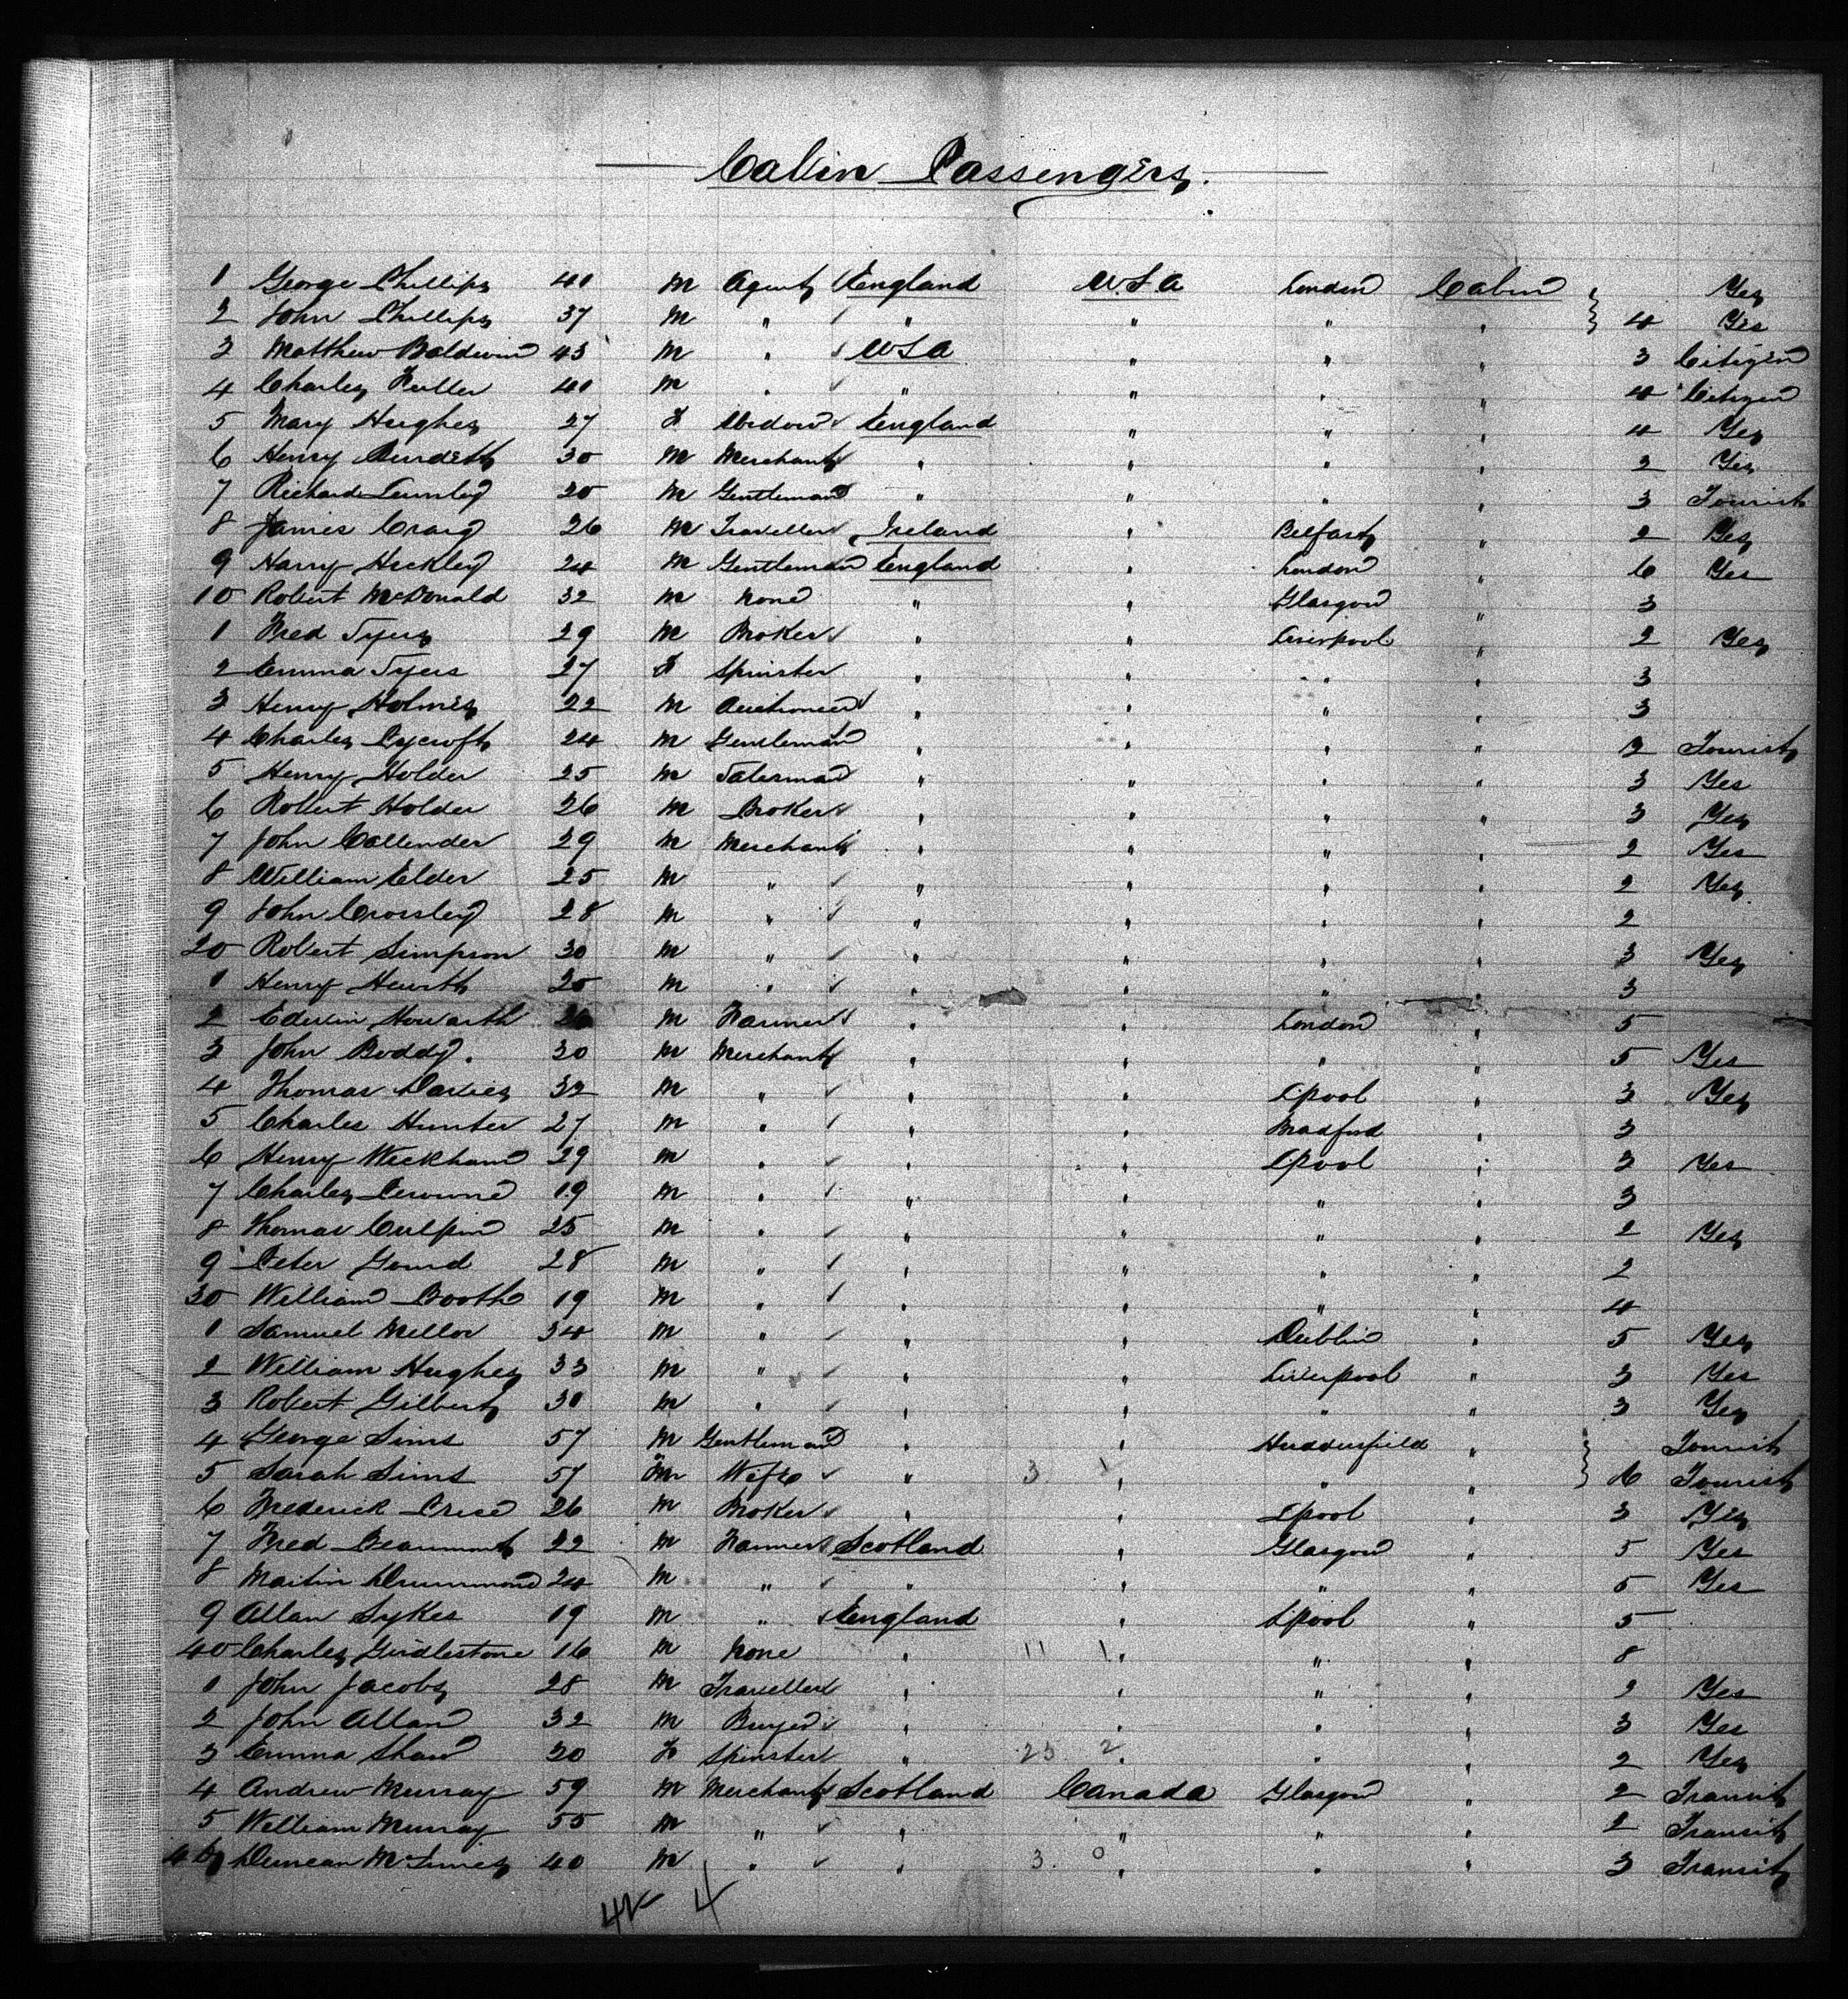 Cabin Passengers.
1 George Phillips 40 M Agent England USA London Cabin Yes
2 John Phillips 37 M " " " " " 4 Yes
3 Matthew Baldwin 43 M " USA " " " 3 Citizen
4 Charles Fuller 40 M " " " " " 4 Citizen
5 Mary Hughes 27 F Widow England " " " 4 Yes
6 Henry Burdett 30 M Merchant " " " " 2 Yes
7 Richard 20 M Gentleman " " " " 3 Tourist
8 James Craig 26 M Traveller Ireland " Belfast " 2 Yes
9 Harry Heckley 24 M Gentleman England " London " 6 Yes
10 Robert McDonald 32 M None " " Glasgow " 3
1 Fred Tyers 29 M Broker " " Liverpool " 2 Yes
2 Emma Tyers 27 F Spinster " " " " 3
3 Henry Holmes 22 M Auctioneer " " " " 3
4 Charles Lycroft 24 M Gentleman " " " " 2 Tourist
5 Henry Holder 25 M Salesman " " " " 3 Yes
6 Robert Holder 26 M Broker " " " " 3 Yes
7 John Callender 29 M Merchant " " " " 2 Yes
8 William Elder 25 M " " " " " 2 Yes
9 John Crossley 28 M " " " " " 2
20 Robert Simpson 30 M " " " " " 3 Yes
1 Henry 20 M " " " " " 3
2 Edwin Howarth M Farmer " " London " 5
3 John Boddy. 30 M Merchant " " " " 5 Yes
4 Thomas Davies 32 M " " " Lpool " 3 Yes
5 Charles Hunter 27 M " " " Bradford " 3
6 Henry Wickham 29 M " " " Lpool " 3 Yes
7 Charles 19 M " " " " " 3
8 Thomas Culpin 25 M " " " " " 2 Yes
9 Peter Gourd 28 M " " " " " 2
30 William Booth 19 M " " " " " 4
1 Samuel Mellor 34 M " " " Dublin " 5 Yes
2 William Hughes 33 M " " " Liverpool " 3 Yes
3 Robert Gilbert 30 M " " " " " 3 Yes
4 George Sims 57 M Gentleman " " Huddersfield " Tourist
5 Sarah Sims 57 Wife " 3 1 " " " 6 Tourist
6 Frederick Price 26 M Broker " " Lpool " 3 Yes
7 Fred Beaumont 22 M Farmer Scotland " Glasgow " 5 Yes
8 Martin Drummond 24 M " " " " " 5 Yes
9 Allan Sykes 19 M " England " Lpool " 5
40 Charles Girdlestone 16 M None " 11 1 " " " 8
1 John Jacobs 28 M Traveller " " " " 2 Yes
2 John Allan 32 M Buyer " " " " 3 Yes
3 Emma Shaw 20 F Spinster " 25 2 " " " 2 Yes
4 Andrew Murray 59 M Merchant Scotland Canada Glasgow " 2 Transit
5 William Murray 55 M " " " " " 2 Transit
46 Duncan McInnes 40 M " " 3 0 " " " 3 Transit
42 4